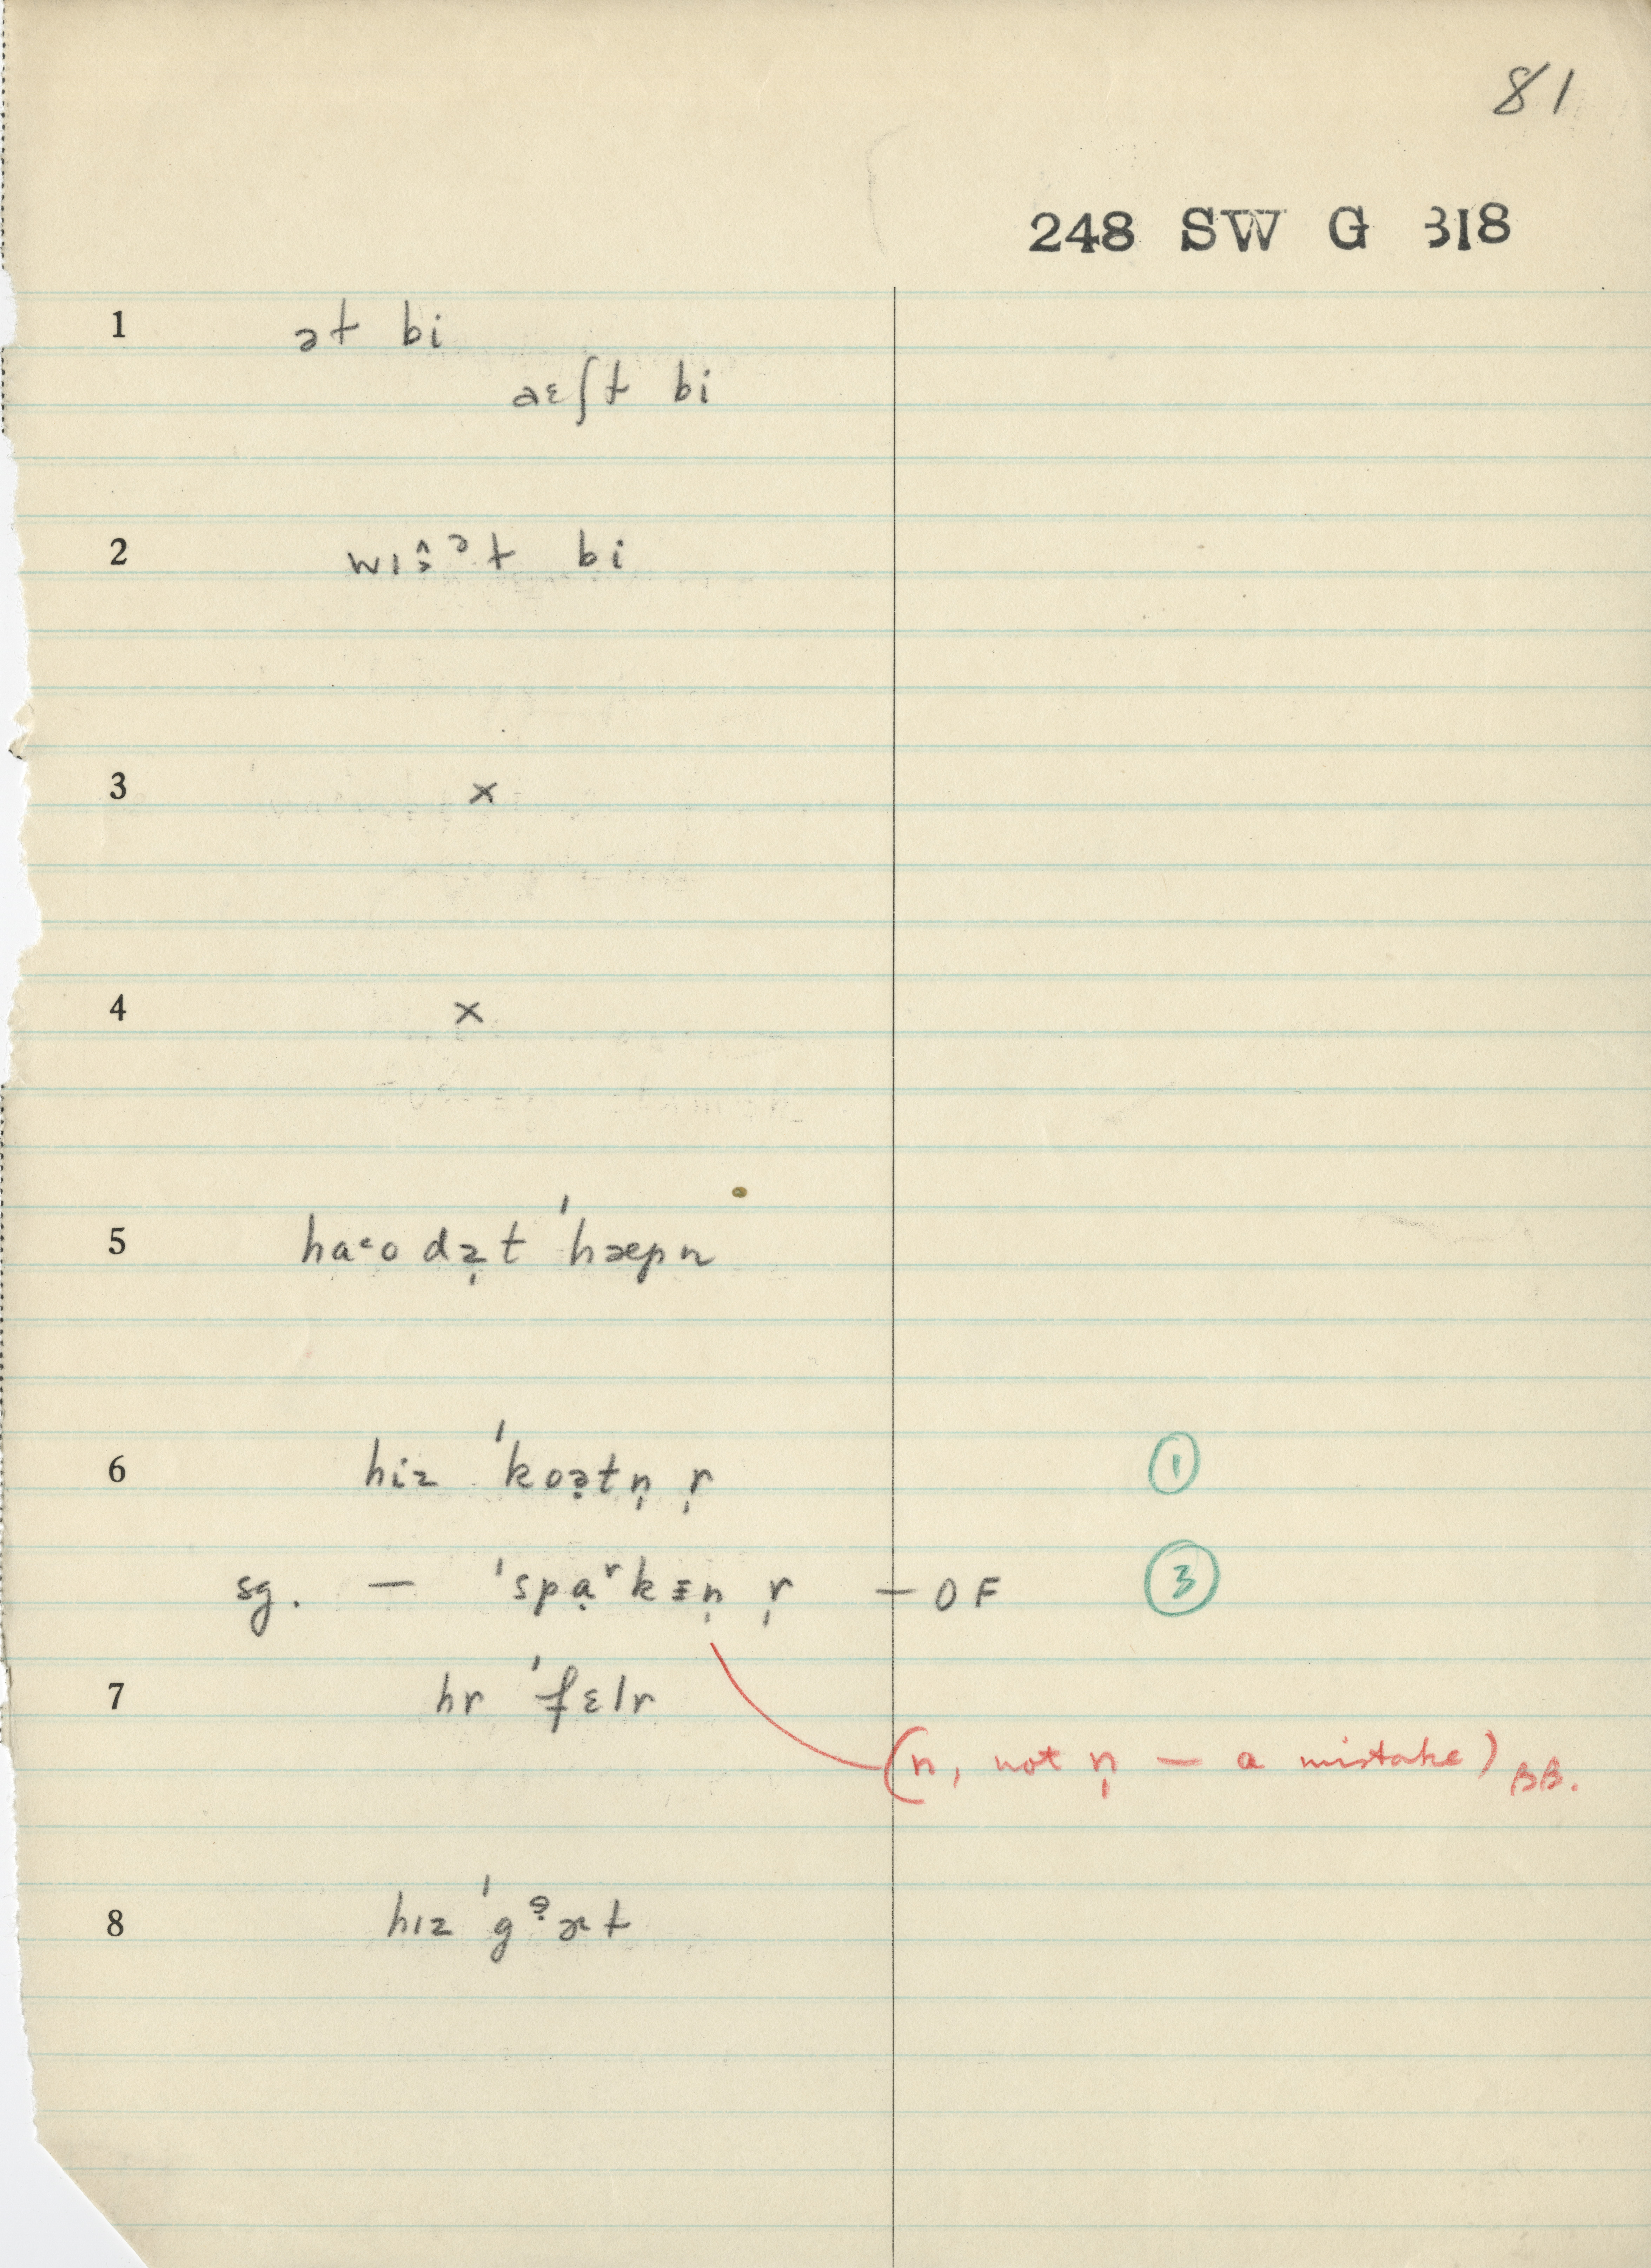 81
248 SW G 318
1 ət bi
aɛʃt bi
2 bi
3 ×
4 ×
5 haˑo də̣t ˈhæpn
6 hiz ˈkoə̣tn̩ r̩ ①
sg. — ˈspạʳkɪn̩ r̩ — OF ③
7 hr ˈfɛlr
(n, not n̩ — a mistake) BB.
8 hɪz